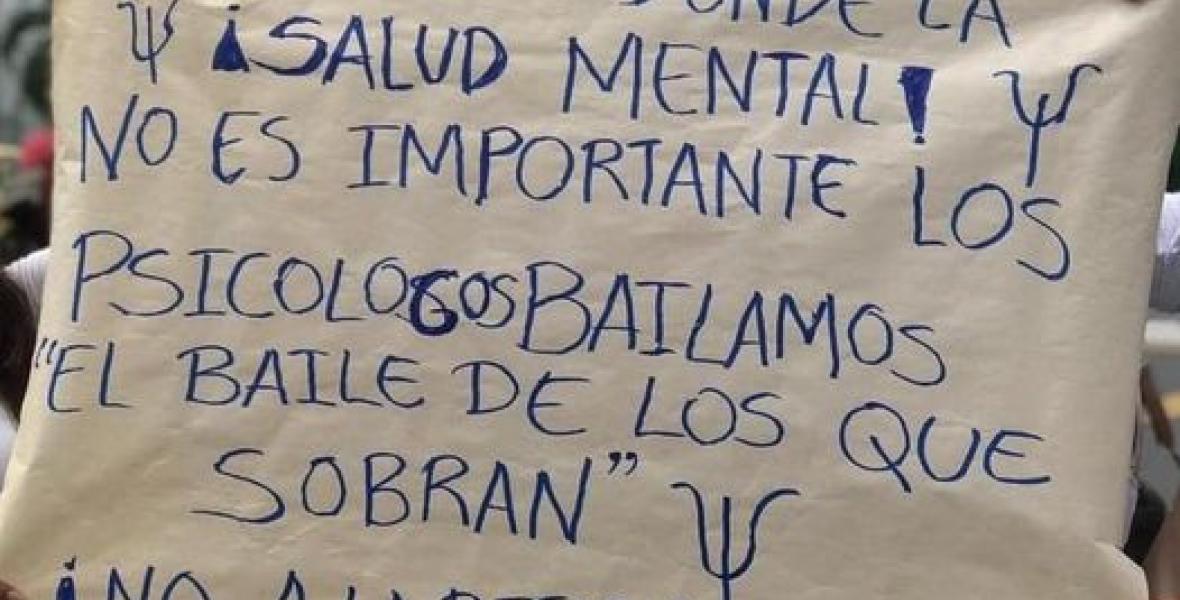 DONDE LA
Ψ ¡SALUD MENTAL! Ψ
NO ES IMPORTANTE LOS
PSICOLOGOS BAILAMOS
"EL BAILE DE LOS QUE
SOBRAN" Ψ
¡NO A LA